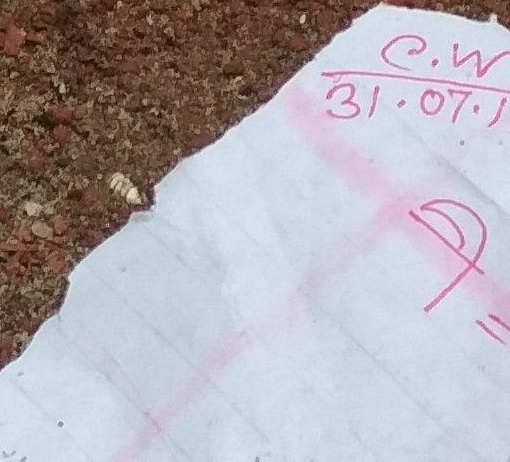 C.W
31.07.1
=